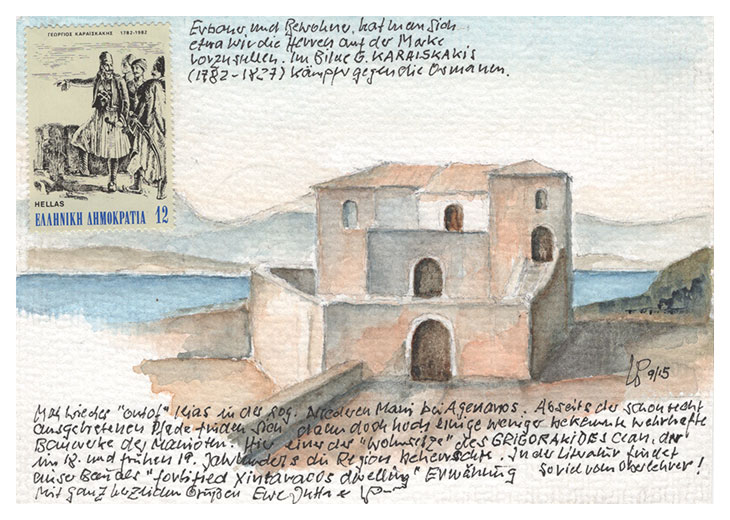 ΓΕΩΡΓΙΟΣ ΚΑΡΑΪΣΚΑΚΗΣ 1782-1982
HELLAS
ΕΛΛΗΝΙΚΗ ΔΗΜΟΚΡΑΤΙΑ 12
Erbauer und Bewohner hat man sich
etwa wie die Herren auf der Marke
vorzustellen. Im Bilde G. KARAISKAKIS
(1782-1827) Kämpfer gegen die Osmanen.
9/15
Mal wieder "out of" Kias in der sog. Niederen Mani bei Ageranos. Abseits der schon recht
ausgetretenen Pfade finden sich dann doch noch einige weniger bekannte wehrhafte
Bauwerke der Manioten. Hier einer der "Wohnsitze" des GRIGORAKIDES Clan, der
im 18. und frühen 19. Jahrhunderts die Region beherrschte. In der Literatur findet
unser Bau als "fortified Xintaraoos dwelling" Erwähnung Soviel vom Oberlehrer!
Mit ganz herzlichen Grüßen Eure Jutta